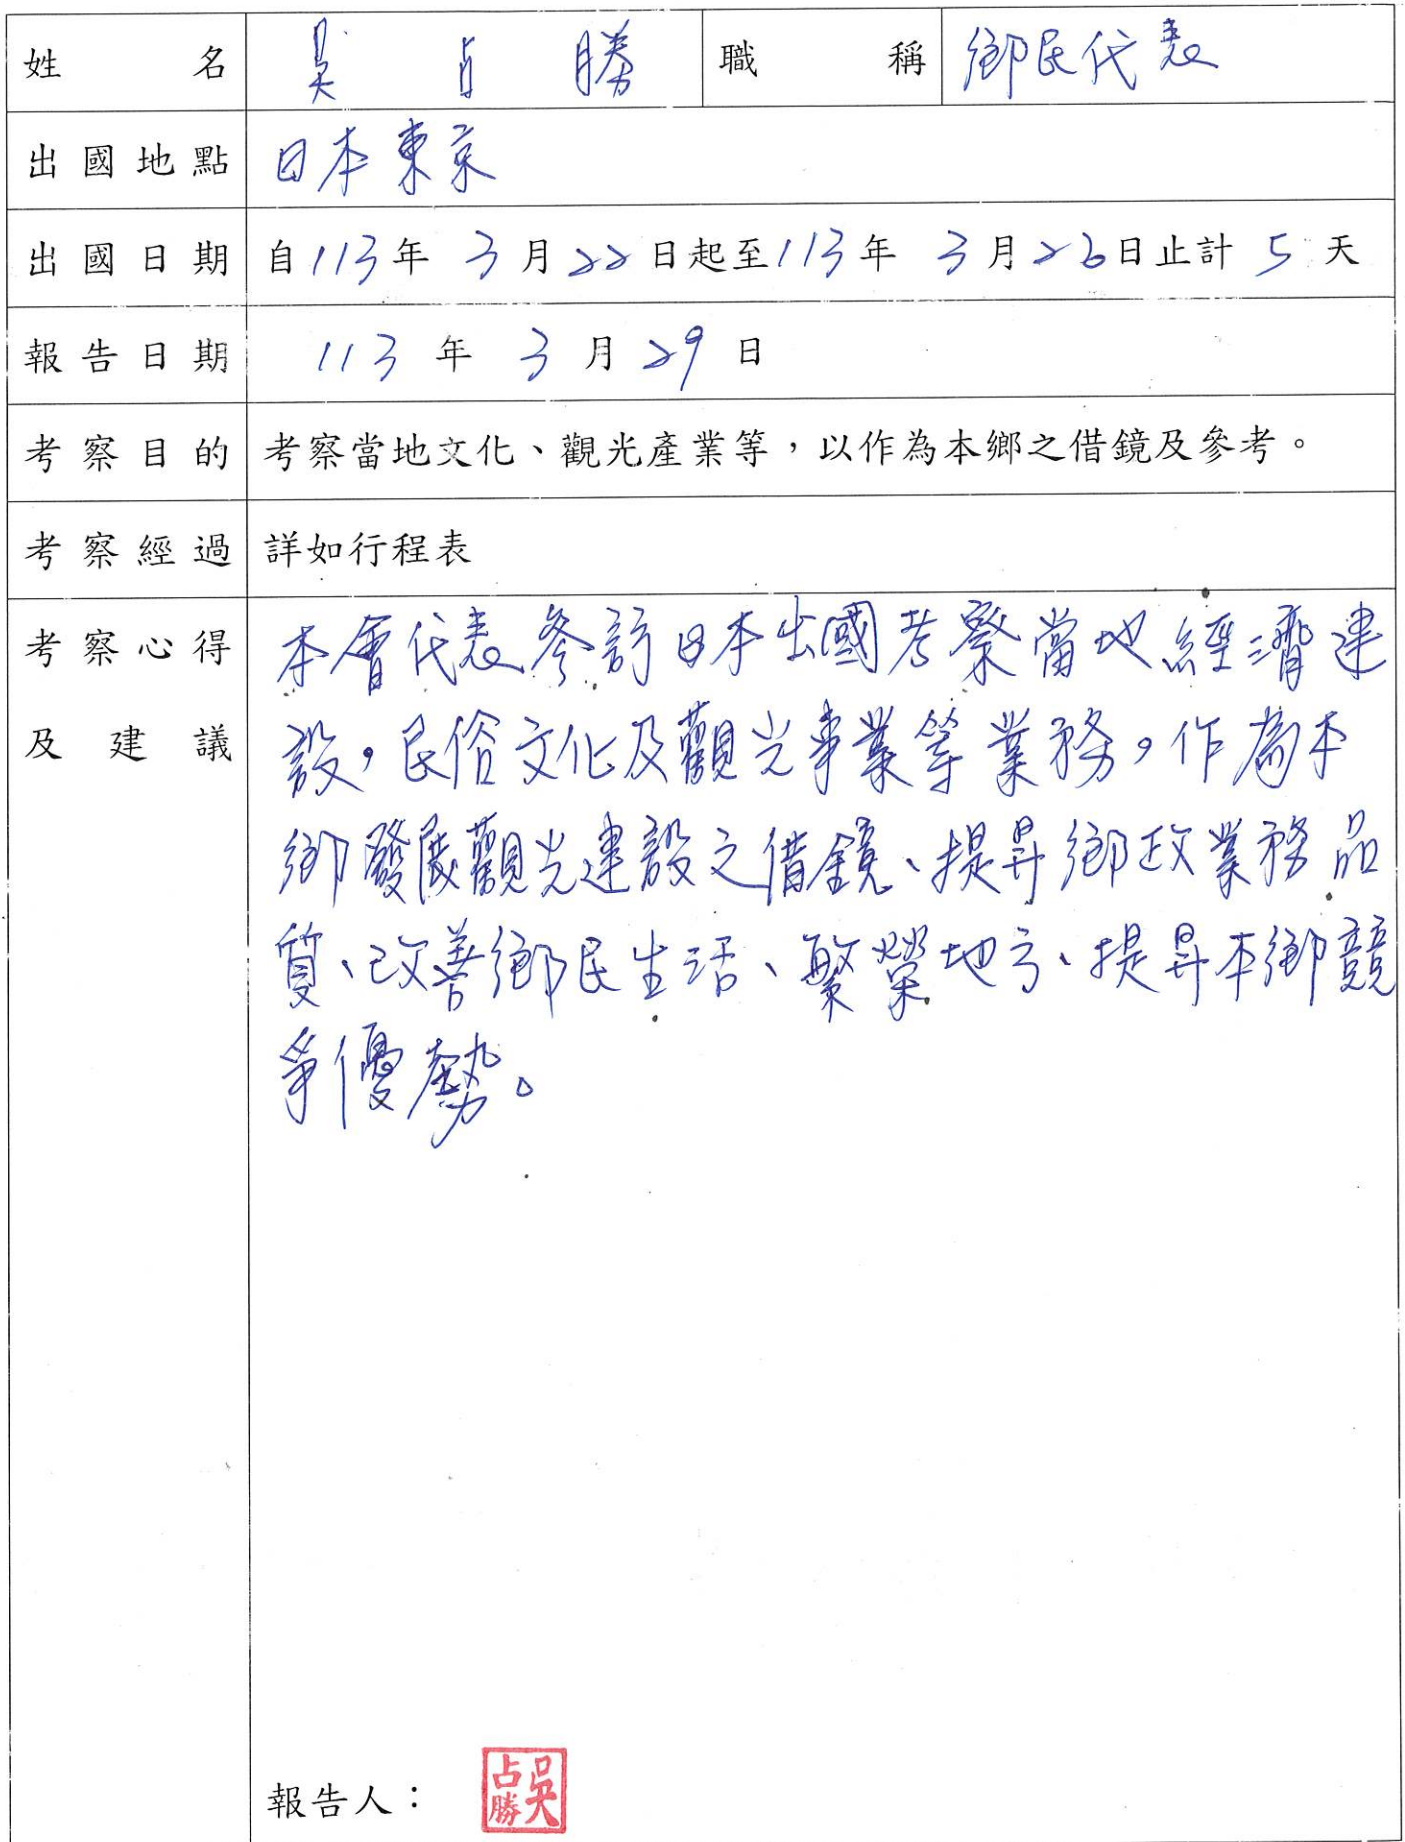 姓名 吳占勝 職稱 鄉民代表
出國地點 日本東京
出國日期 自113年 3月22日起至113年 3月26日止計 5 天
報告日期 113 年 3 月 29 日
考察目的 考察當地文化、觀光產業等，以作為本鄉之借鏡及參考。
考察經過 詳如行程表
考察心得 本會代表參訪日本出國考察當地經濟建
及建議 設，民俗文化及觀光事業等業務，作為本
鄉發展觀光建設之借鏡、提昇鄉政業務品
質、改善鄉民生活、繁榮地方、提昇本鄉競
爭優勢。
報告人： 吳占勝